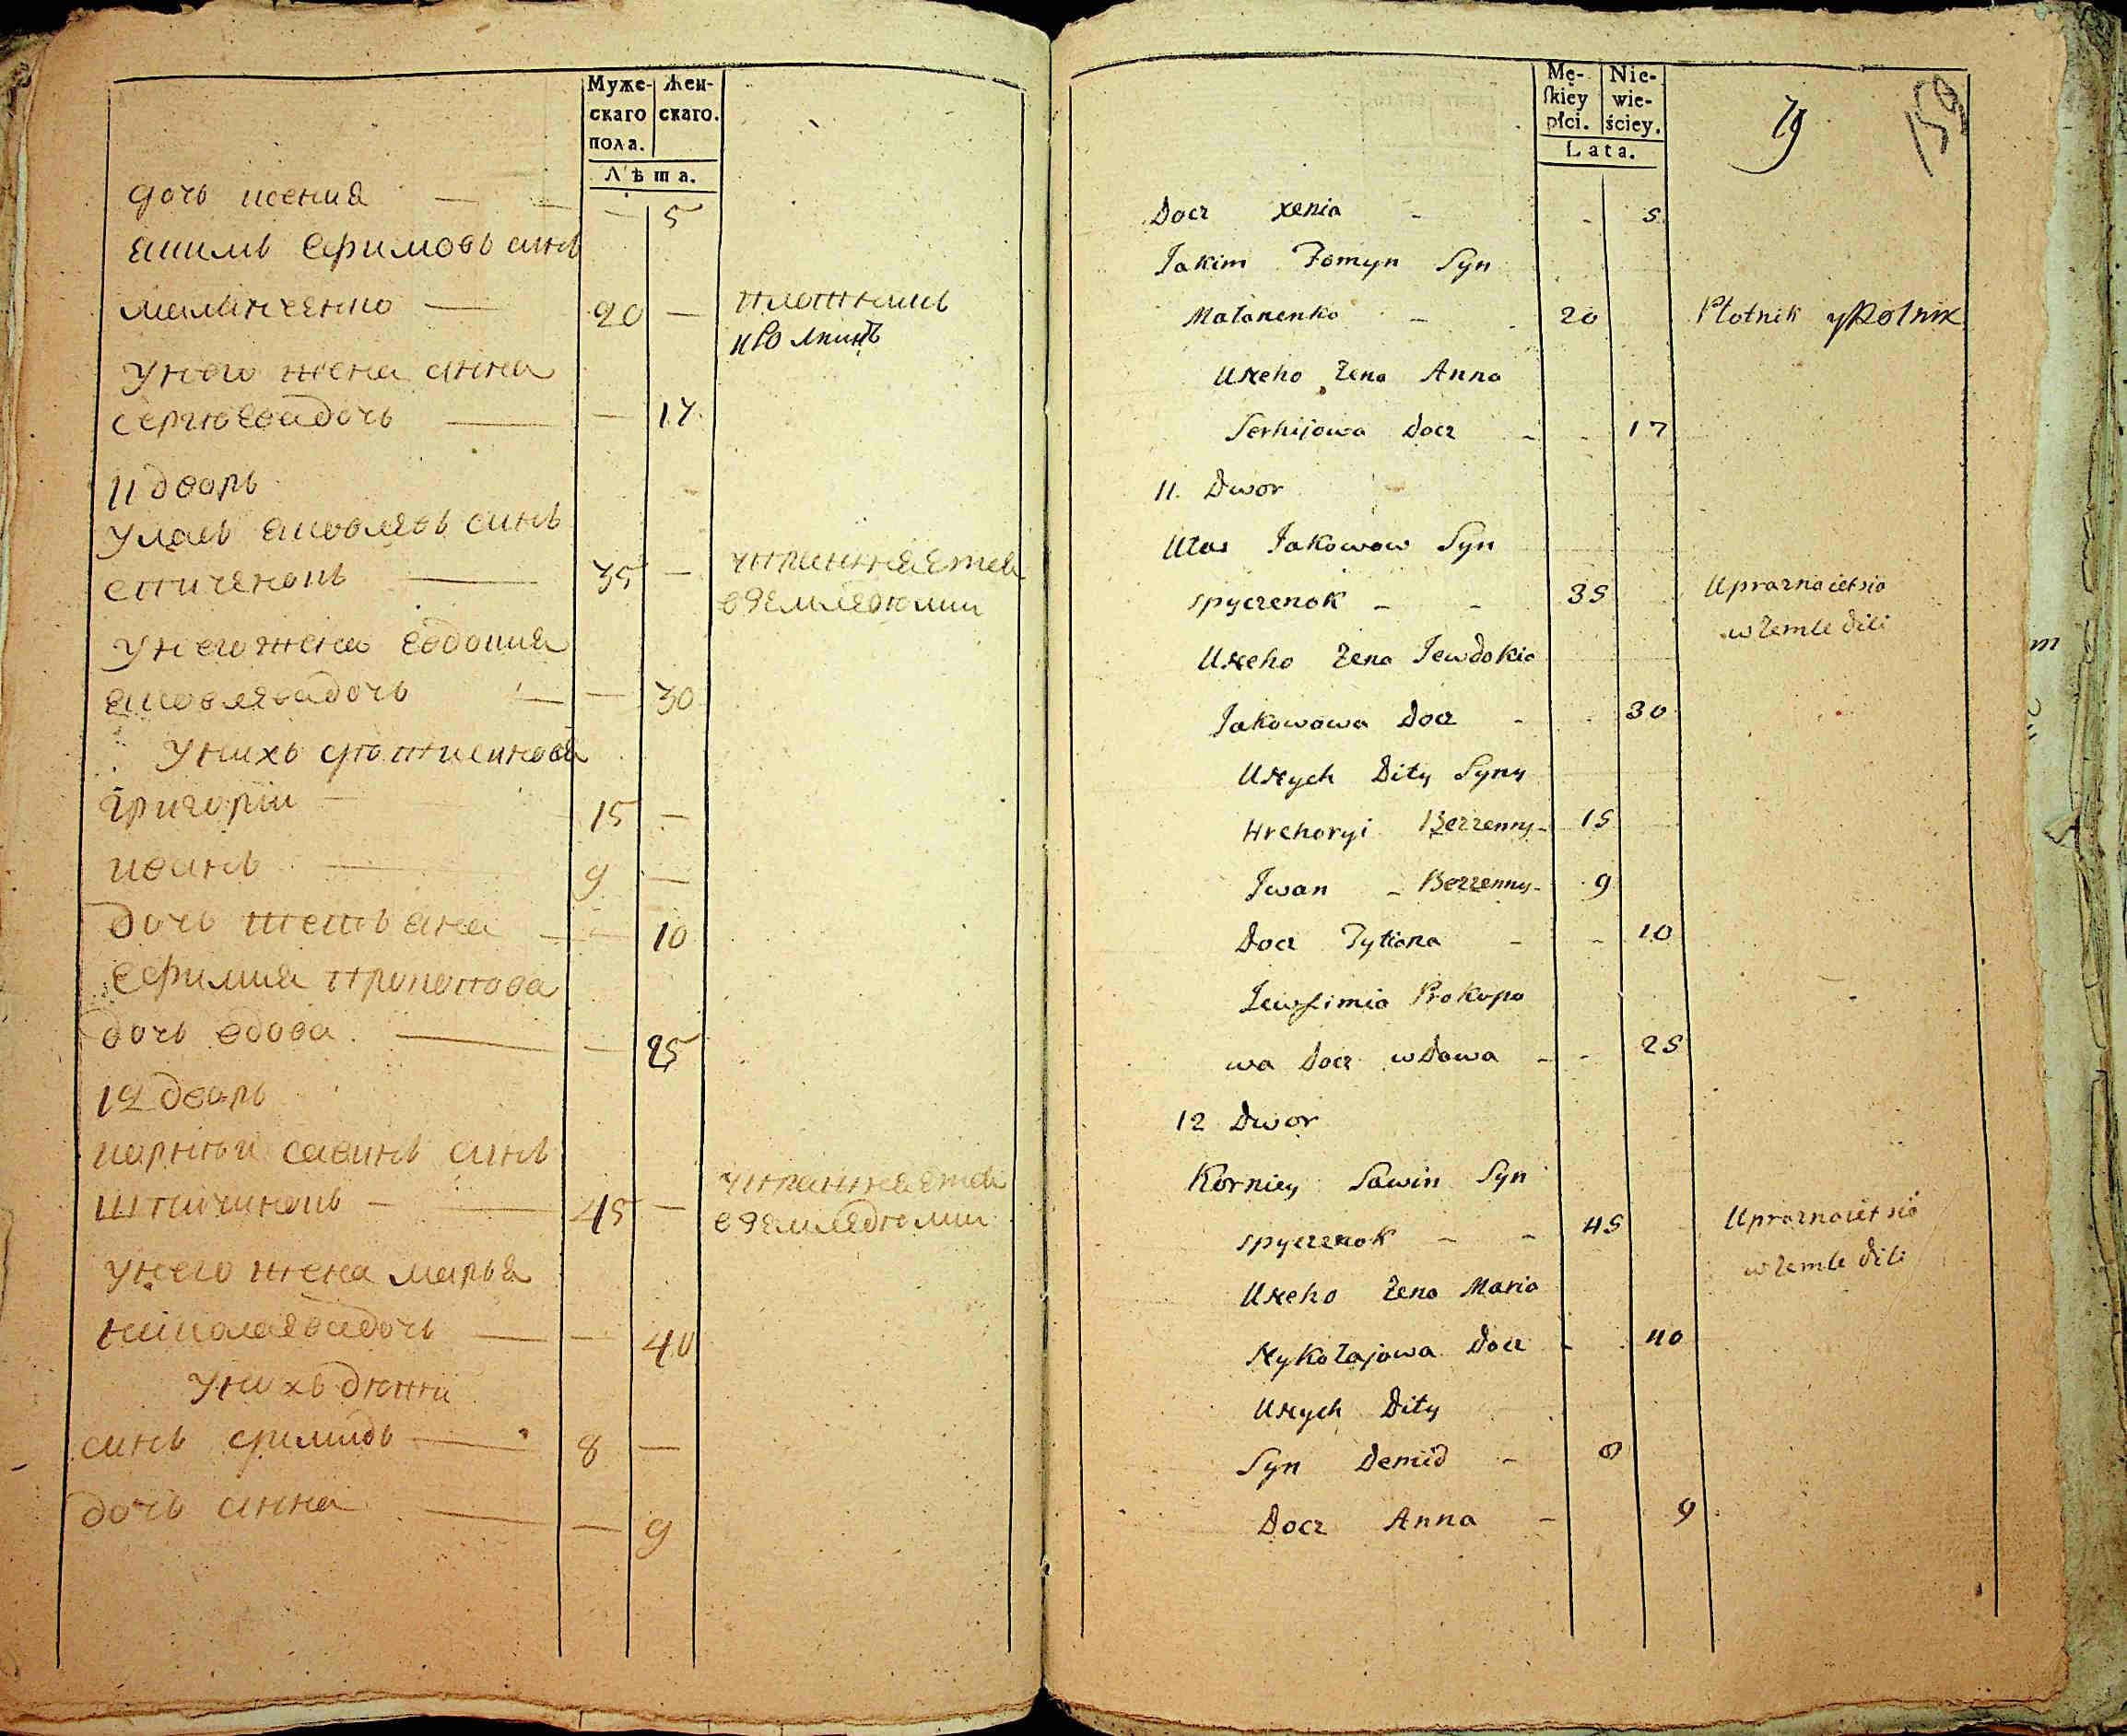 Муже-
скаго
пола.
Жен-
скаго.
Лѣта.
дочь ксения — — — 5
якимъ Ефимовъ синъ
маланченко — 20 — плотникъ
унего жена анна
сергѣевадочь — — 17
11 дворъ
улась яковлевъ синъ
спиченокъ — 35 — упражняется
вземледѣлии
унего жена Евдокия
яковлевадочь — — 30
унихъ дѣти синовя
григории — 15 —
иванъ — 9 —
дочь татьяна — — 10
Ефимия прокопова
дочь вдова. — — 25
12 дворъ
корнѣи савинъ синъ
спичинокъ — 45 — упражняется
вземледѣлии
унего жена марья
николаевадочь — — 40
унихъ дѣти
синъ димидъ — 8 —
дочь анна — — 9
Mę-
skiey
płci.
Nie-
wie-
ściey.
Lata.
79
Docz xenia - - 5
Jakim Fomyn Syn
Małanenko - 20 Płotnik y Rolnik
Uneho Zena Anna
Serhijowa Docz - - 17
11. Dwor
Ułas Jakowow Syn
spyczenok - - 35 Upraznaietsia
w Zemle dili
Uneho Zena Jewdokia
Jakowowa Docz - - 30
Unych Dity Syny
Hrehoryi Bezzenny - 15
Jwan - Bezzenny - 9
Docz Tytiana - - 10
Jewfimia Prokopo
wa Docz wdowa - - 25
12 Dwor
Korniey Sawin Syn
spyczenok - - 45 Upraznaietsia
w Zemle dili
Uneho Zena Maria
Nykołajowa Docz - 40
Unych Dity
Syn Demid - 8
Docz Anna - 9